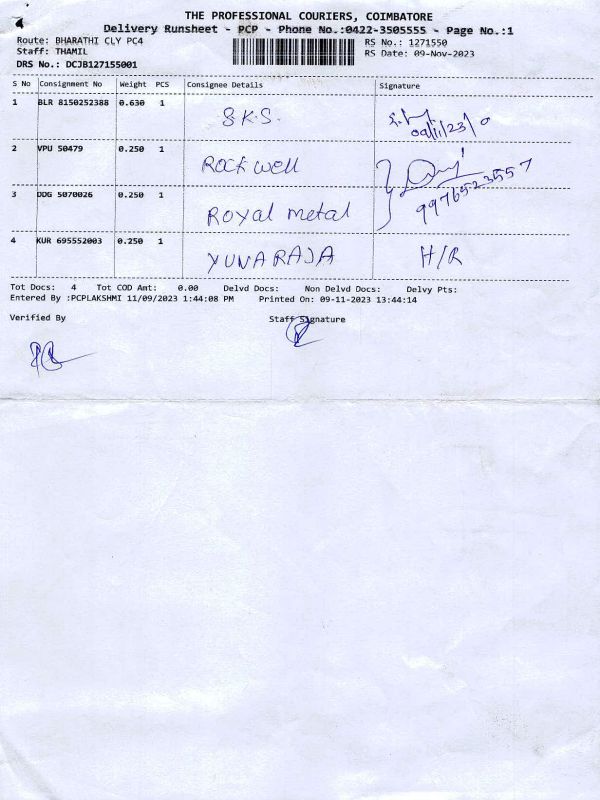 THE PROFESSIONAL COURIERS, COIMBATORE
Delivery Runsheet - PCP - Phone No.:0422-3505555 - Page No.:1
Route: BHARATHI CLY PC4 RS No.: 1271550
Staff: THAMIL RS Date: 09-Nov-2023
DRS No.: DCJB127155001
S No Consignment No Weight PCS Consignee Details Signature
1 BLR 8150252388 0.630 1 S.K.S.
09/11/23
2 VPU 50479 0.250 1 Rockwell
9976523557
3 DDG 5070026 0.250 1 Royal metal
4 KUR 695552003 0.250 1 YUNARAJA H/R
Tot Docs: 4 Tot COD Amt: 0.00 Delvd Docs: Non Delvd Docs: Delvy Pts:
Entered By :PCPLAKSHMI 11/09/2023 1:44:08 PM Printed On: 09-11-2023 13:44:14
Verified By Staff Signature